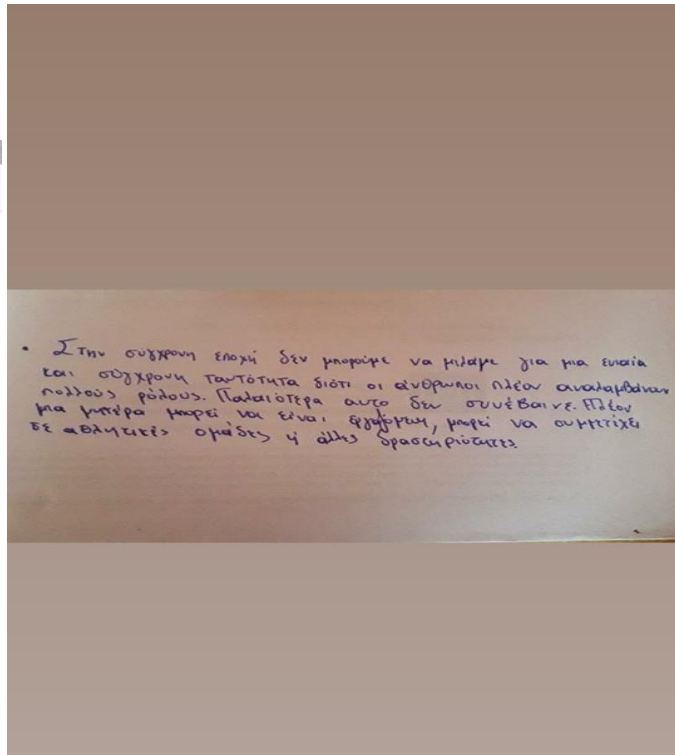 • Στην σύγχρονη εποχή δεν μπορούμε να μιλάμε για μια ενιαία
και σύγχρονη ταυτότητα διότι οι άνθρωποι πλέον αναλαμβάνουν
πολλούς ρόλους. Παλαιότερα αυτο δεν συνέβαινε. Πλέον
μια μητέρα μπορεί να είναι εργαζόμενη, μπορεί να συμμετέχει
σε αθλητικές ομάδες ή άλλες δραστηριότητες.